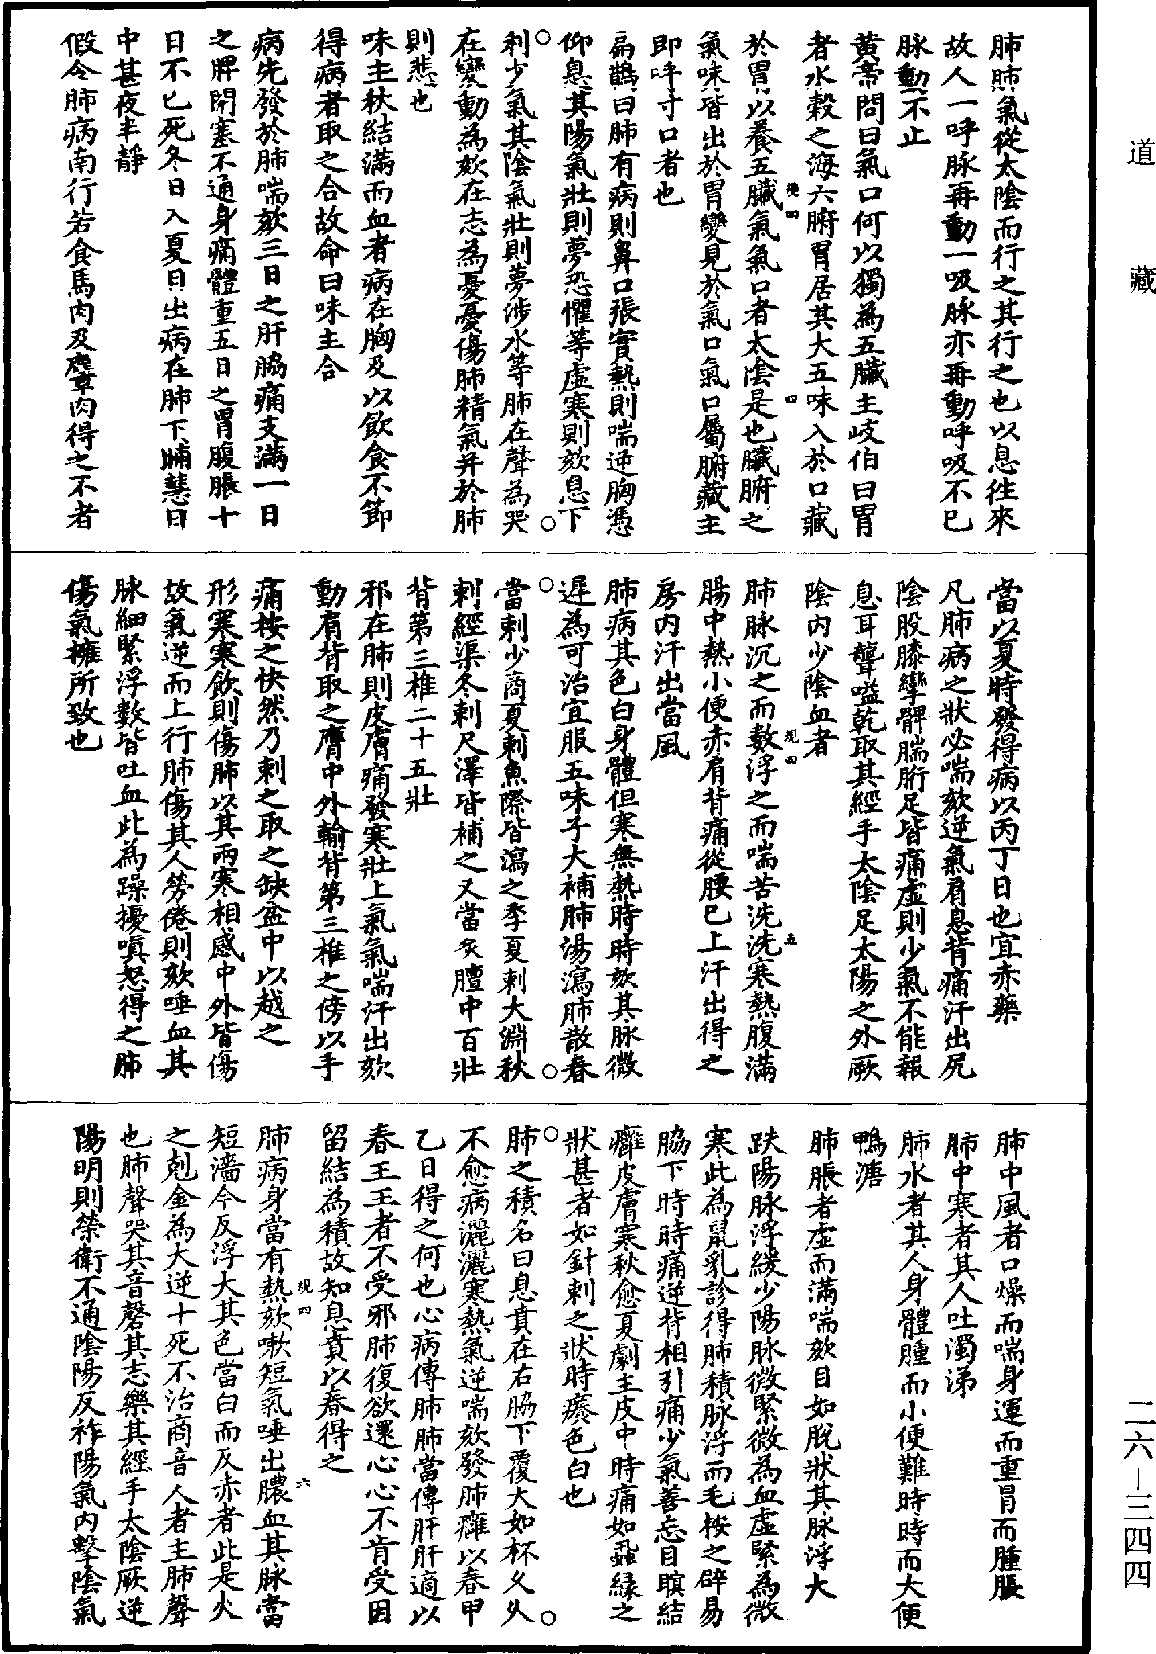 肺肺氣從太陰而行之其行之也以息往來
故人一呼脉再動一吸脉亦再動呼吸不已
脉動不止
黃帝問曰氣口何以獨為五臟主岐伯曰胃
者水穀之海六腑胃居其大五味入於口藏
於胃以養五臟氣氣口者太陰是也臟腑之
氣味皆出於胃變見於氣口氣口屬腑藏主
即呼寸口者也
扁鵲曰肺有病則鼻口張實熱則喘逆胸憑
仰息其陽氣壯則夢恐懼等虛寒則欬息下
利少氣其陰氣壯則夢涉水等肺在聲為哭
在變動為欬在志為憂憂傷肺精氣并於肺
則悲也
味主秋結滿而血者病在胸及以飲食不節
得病者取之合故命曰味主合
病先發於肺喘欬三日之肝脇痛支滿一日
之脾閉塞不通身痛體重五日之胃腹脹十
日不已死冬日入夏日出病在肺下晡慧日
中甚夜半靜
假令肺病南行若食馬肉及麞肉得之不者
當以夏時發得病以丙丁日也宜赤藥
凡肺病之狀必喘欬逆氣肩息背痛汗出尻
陰股膝攣髀腨胻足皆痛虛則少氣不能報
息耳聾嗌乾取其經手太陰足太陽之外厥
陰內少陰血者
肺脉沉之而數浮之而喘苦洗洗寒熱腹滿
腸中熱小便赤肩背痛從腰已上汗出得之
房內汗出當風
肺病其色白身體但寒無熱時時欬其脉微
遲為可治宜服五味子大補肺湯瀉肺散春
當刺少商夏刺魚際皆瀉之季夏刺大淵秋
刺經渠冬刺尺澤皆補之又當灸膻中百壯
背第三椎二十五壯
邪在肺則皮膚痛發寒壯上氣氣喘汗出欬
動肩背取之膺中外輸背第三椎之傍以手
痛按之快然乃刺之取之缺盆中以越之
形寒寒飲則傷肺以其兩寒相感中外皆傷
故氣逆而上行肺傷其人勞倦則欬唾血其
脉細緊浮數皆吐血此為躁擾嗔怒得之肺
傷氣擁所致也
肺中風者口燥而喘身運而重冒而腫脹
肺中寒者其人吐濁涕
肺水者其人身體腫而小便難時時而大便
鴨溏
肺脹者虛而滿喘欬目如脫狀其脉浮大
趺陽脉浮緩少陽脉微緊微為血虛緊為微
寒此為鼠乳診得肺積脉浮而毛按之辟易
脇下時時痛逆背相引痛少氣善忘目瞑結
癰皮膚寒秋愈夏劇主皮中時痛如蝨緣之
狀甚者如針刺之狀時癢色白也
肺之積名曰息賁在右脇下覆大如杯久久
不愈病灑灑寒熱氣逆喘欬發肺癰以春甲
乙日得之何也心病傳肺肺當傳肝肝適以
春王王者不受邪肺復欲還心心不肯受因
留結為積故知息賁以春得之
肺病身當有熱欬嗽短氣唾出膿血其脉當
短濇今反浮大其色當白而反赤者此是火
之剋金為大逆十死不治商音人者主肺聲
也肺聲哭其音磬其志樂其經手太陰厥逆
陽明則榮衛不通陰陽反祚陽氣內擊陰氣
道藏
二六—三四四